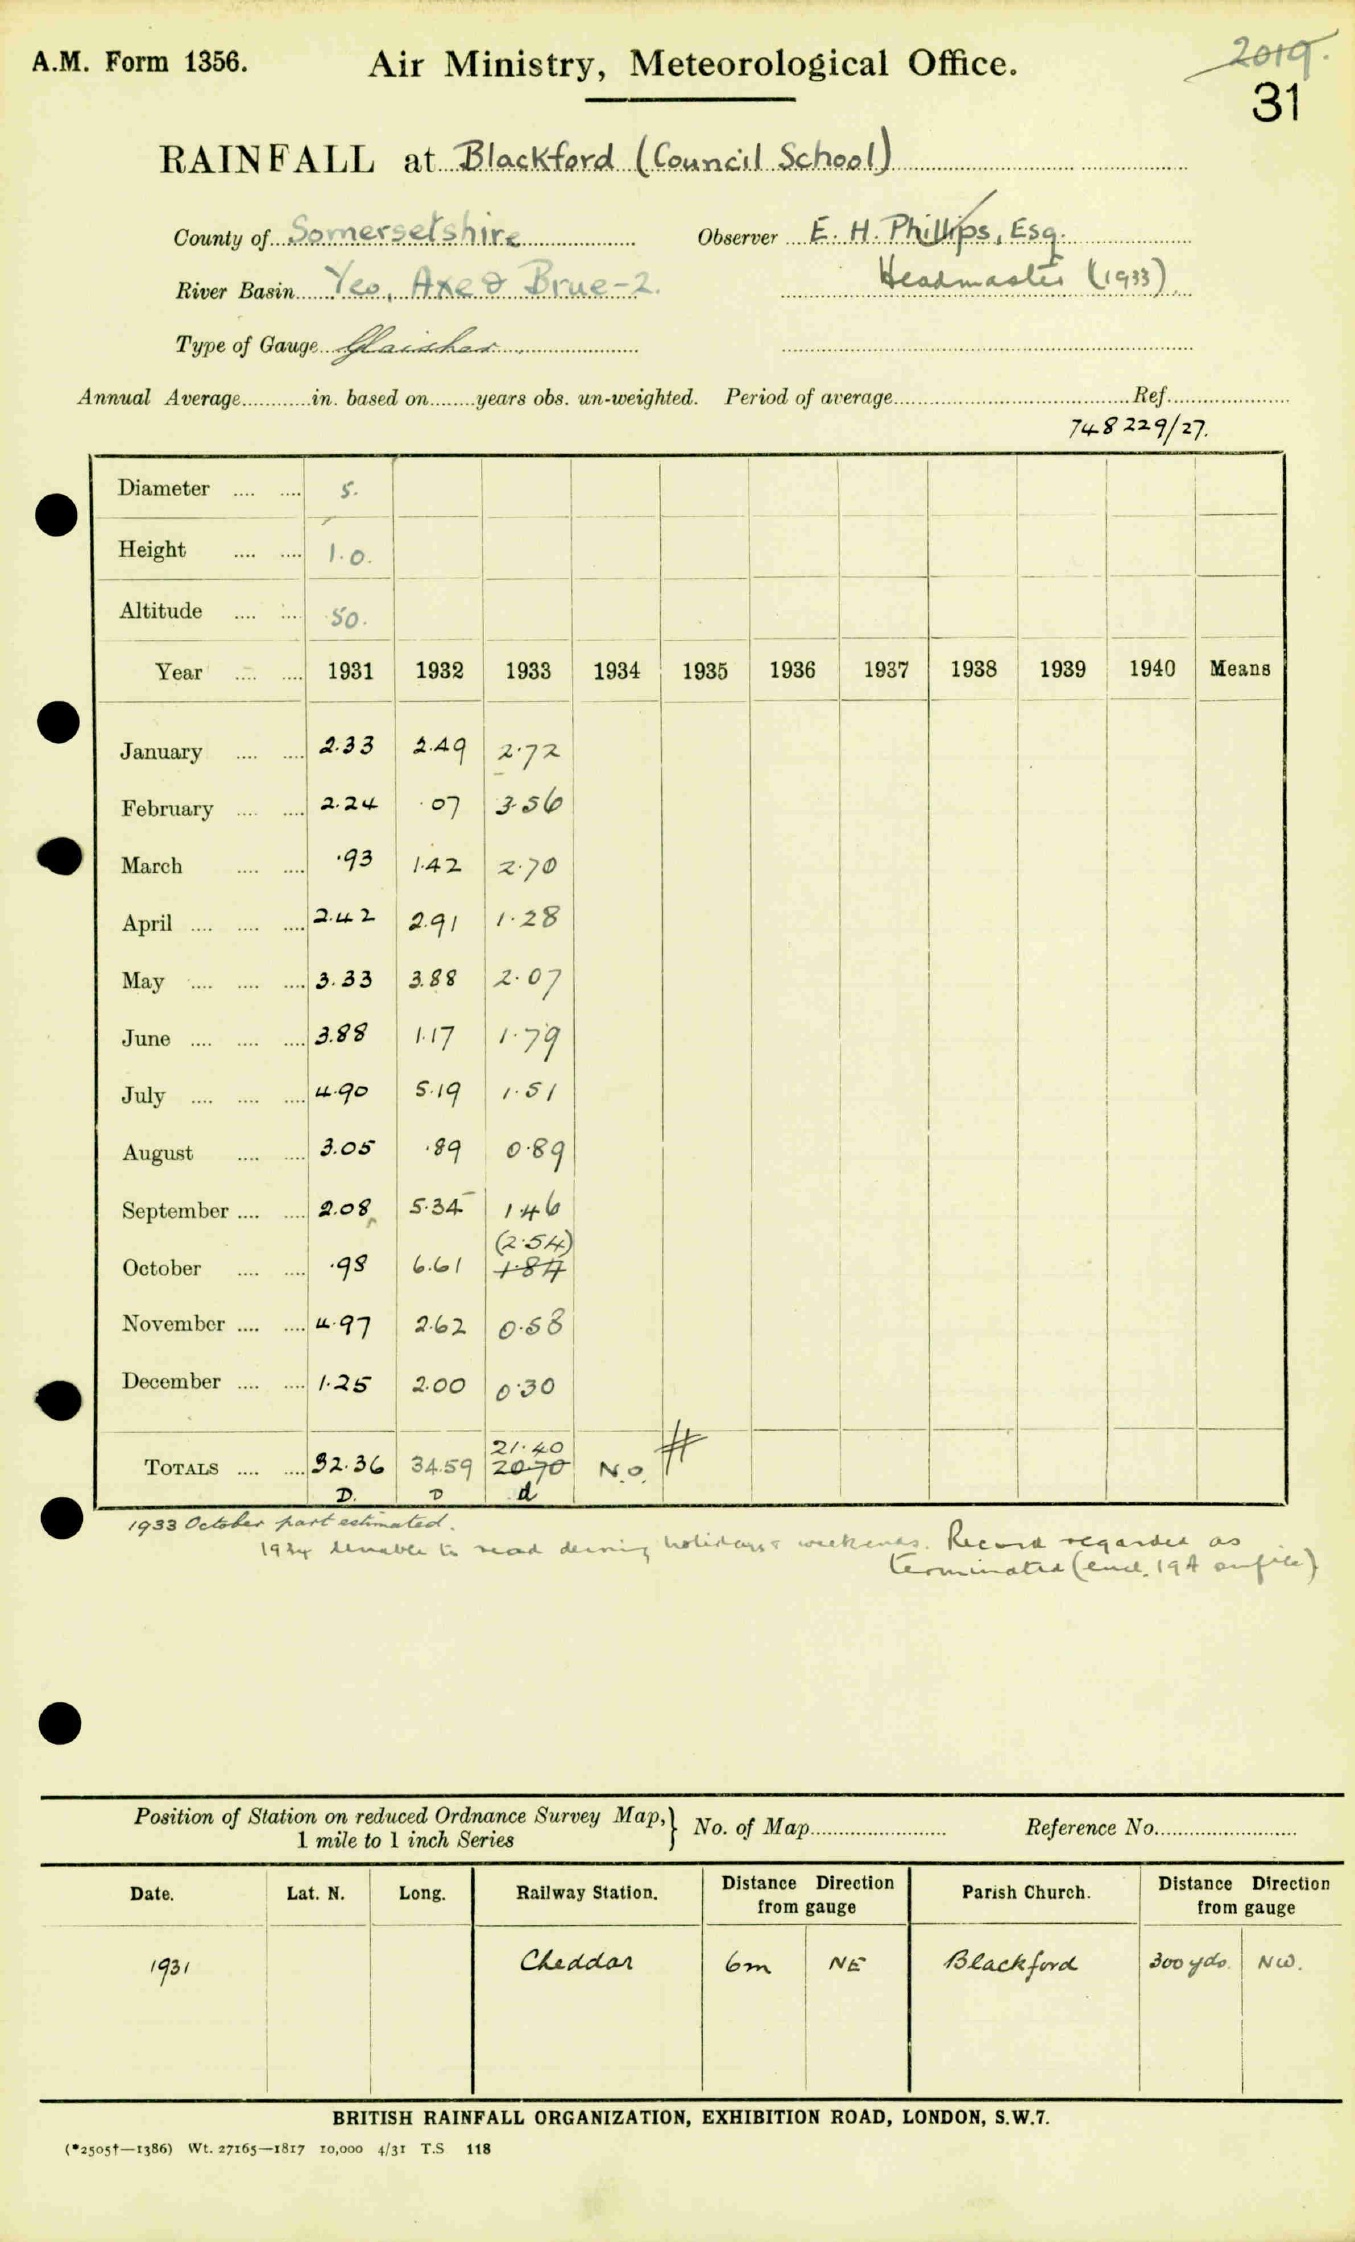 A.M. Form 1356. Air Ministry, Meteorological Office. 2019.
31
RAINFALL at Blackford (Council School)
County of Somersetshire Observer E. H. Phillips, Esq.
River Basin Yeo, Axe & Brue-2. Headmaster (1933)
Type of Gauge Glaisher
Annual Average in. based on years obs. un-weighted. Period of average Ref.
748229/27.
Diameter 5.
Height 1.0.
Altitude 50.
Year 1931 1932 1933 1934 1935 1936 1937 1938 1939 1940 Means
January 2.33 2.49 2.72
February 2.24 .07 3.56
March .93 1.42 2.70
April 2.42 2.91 1.28
May 3.33 3.88 2.07
June 3.88 1.17 1.79
July 4.90 5.19 1.51
August 3.05 .89 0.89
September 2.08 5.34 1.46
(2.54)
October .98 6.61 1.84
November 4.97 2.62 0.58
December 1.25 2.00 0.30
21.40
TOTALS 32.36 34.59 20.70 N.O.
D. D d
1933 October part estimated.
1934 Unable to read during holidays & weekends. Record regarded as
terminated (encl. 19A on file)
Position of Station on reduced Ordnance Survey Map,} No. of Map Reference No.
1 mile to 1 inch Series
Date. Lat. N. Long. Railway Station. Distance Direction from gauge Parish Church. Distance Direction from gauge
1931 Cheddar 6m NE Blackford 300 yds. NW.
BRITISH RAINFALL ORGANIZATION, EXHIBITION ROAD, LONDON, S.W.7.
(*2505†—1386) Wt. 27165—1817 10,000 4/31 T.S 118